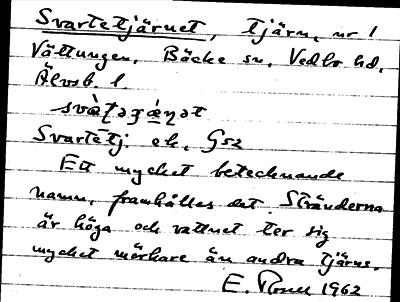 Svartetjärnet, tjärn, nr 1
Vättungen, Bäcke sn, Vedbo hd,
Älvsb. l.
svàʈəçæ̀ɳət
Svartetj: ek, G52
Ett mycket betecknande
namn, framhålles det. Stränderna
är höga och vattnet ter sig
mycket mörkare än andra tjärns.
E. 1962